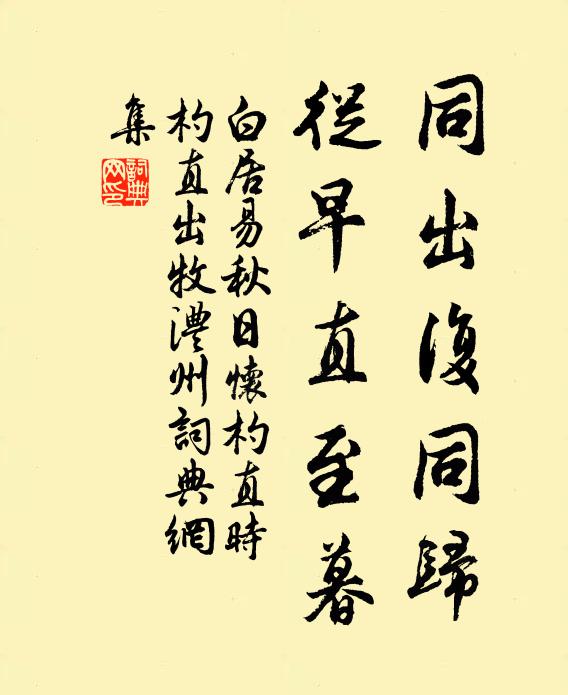 同出復同歸
從早直至暮
白居易秋日懷杓直時
杓直出牧澧州詞典網
集
詞典
网印